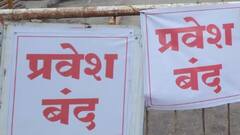 प्रवेश
बंद
प्रवेश
बंद